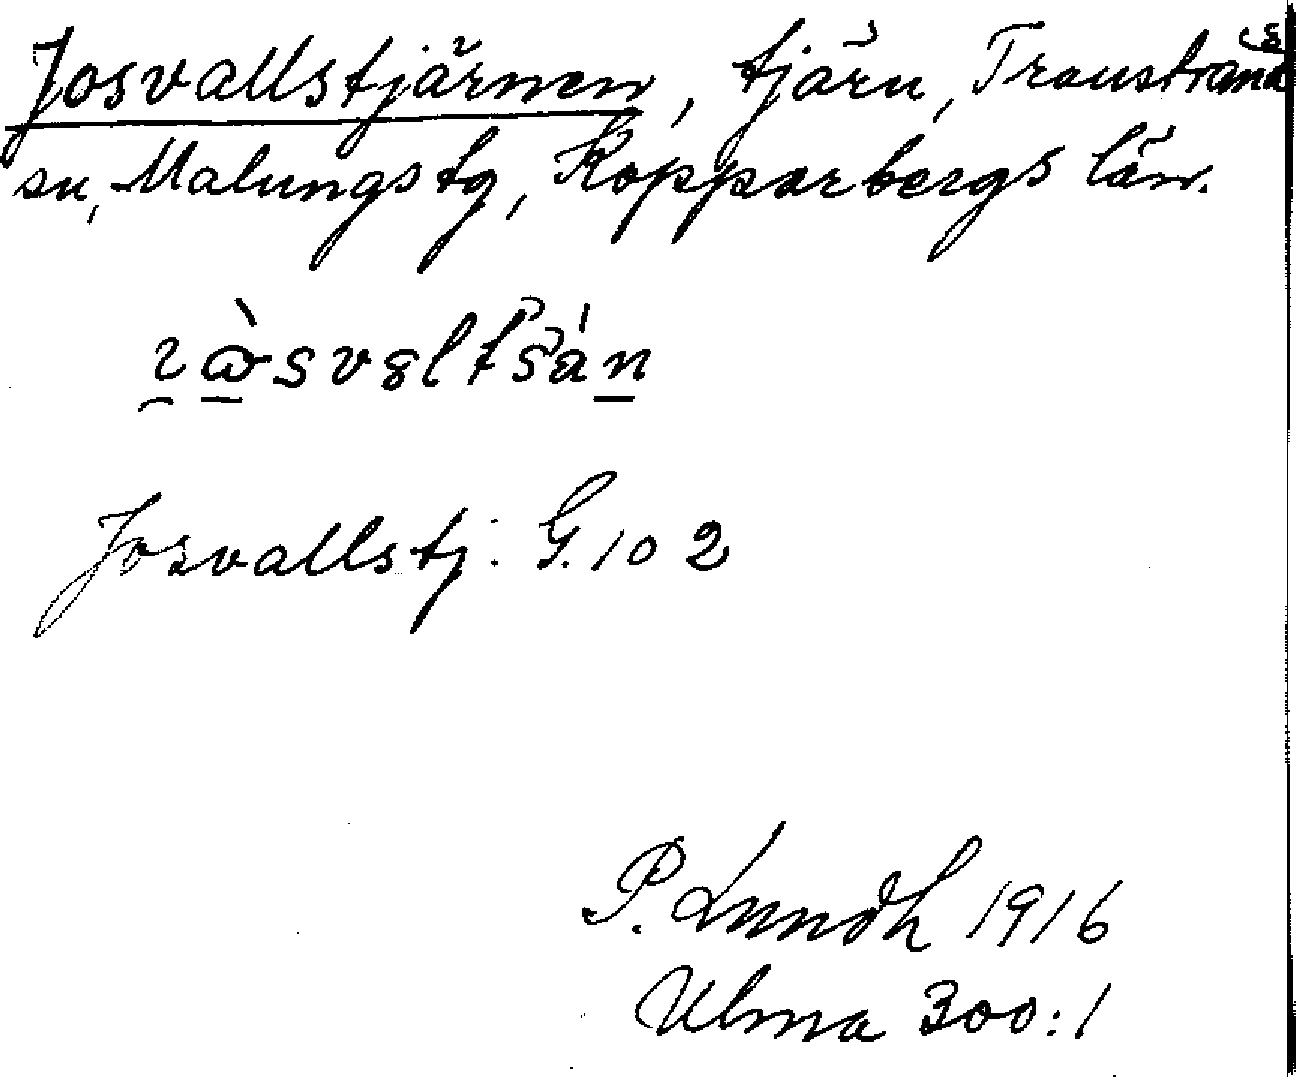 Josvallstjärnen, tjärn, Transtrands
sn, Malungs tg, Kopparbergs län.
Josvallstj. G. 10 2
P. Lundh 1916
Ulma 300:1